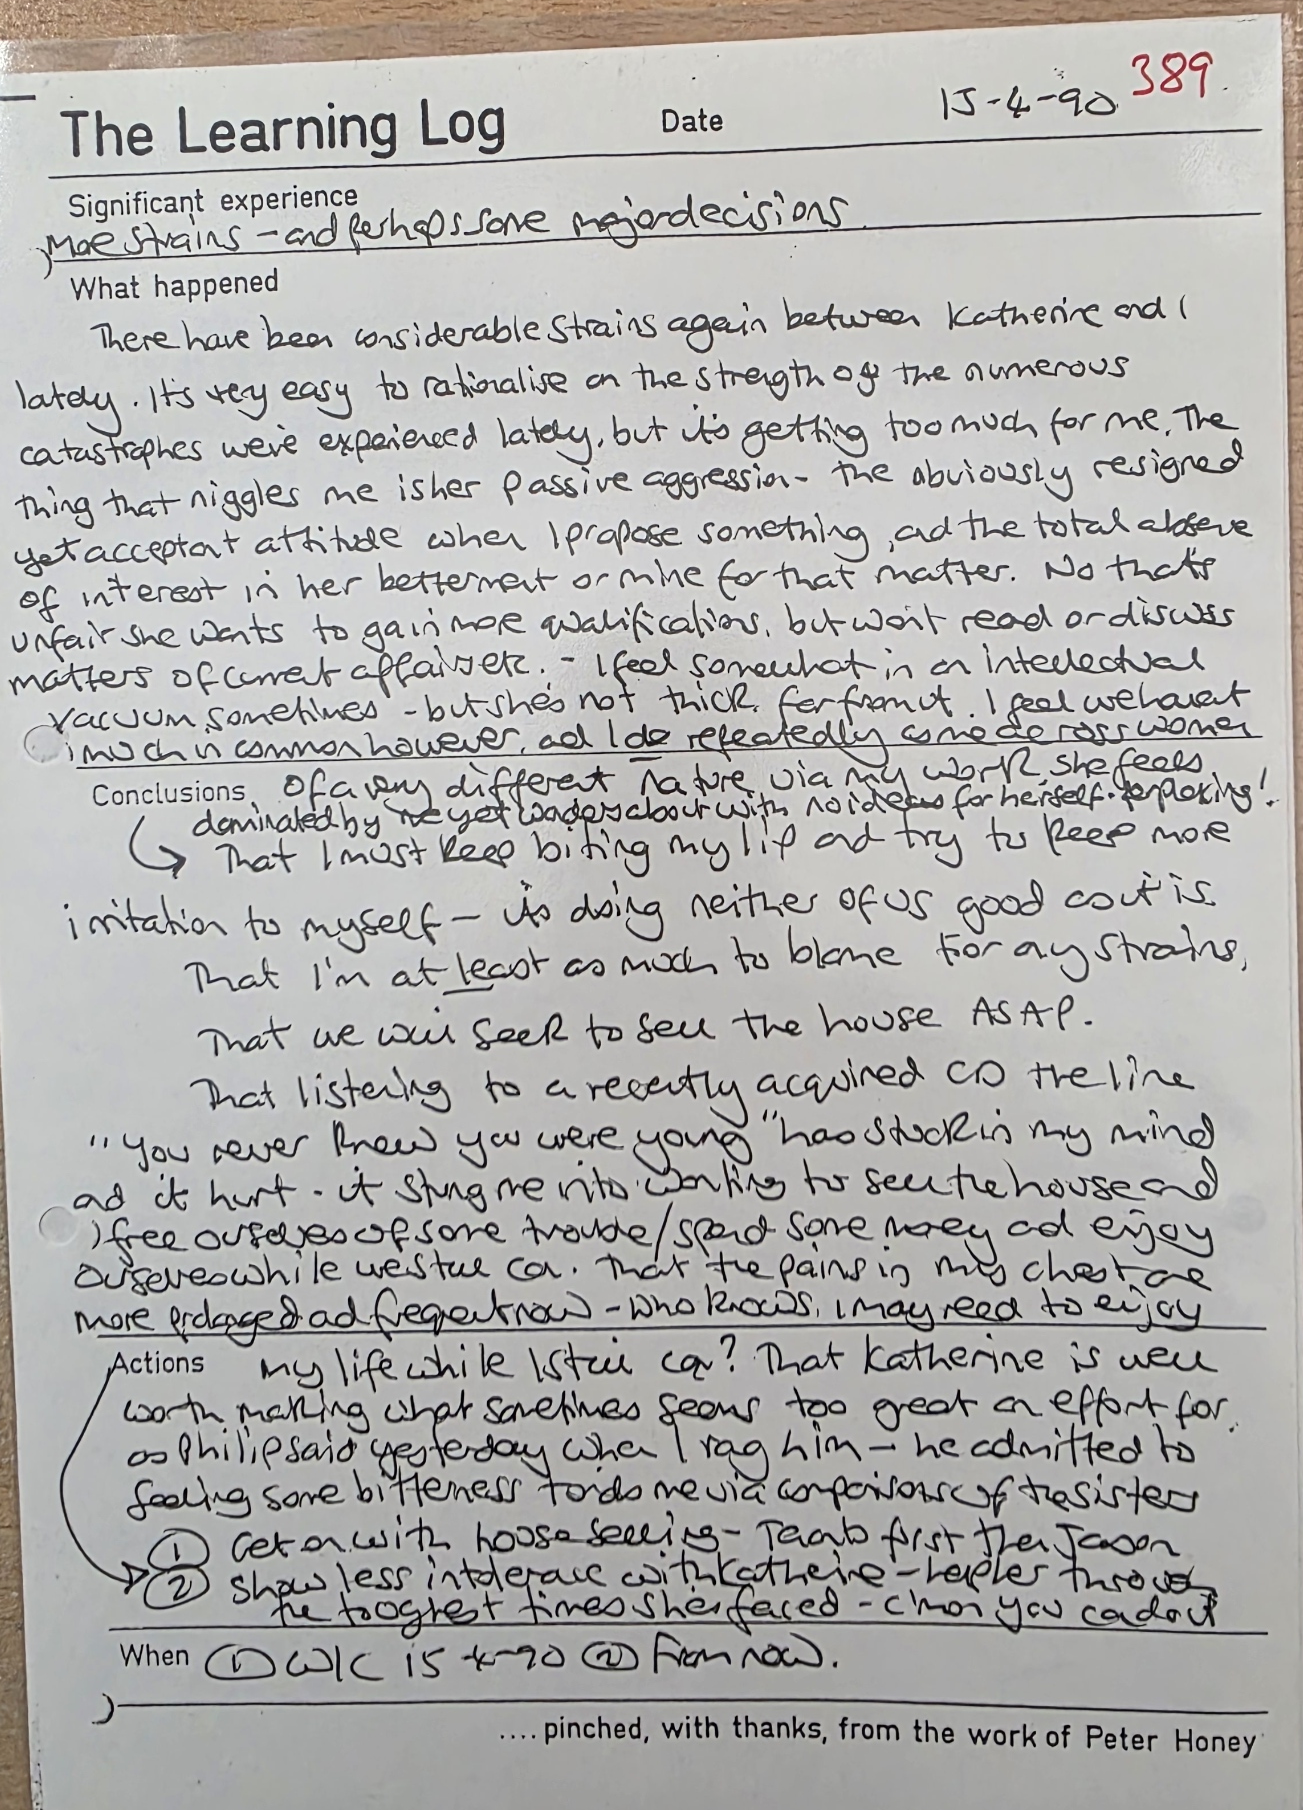 389.
The Learning Log Date 15-4-90
Significant experience
More strains - and perhaps some major decisions
What happened
There have been considerable strains again between Katherine and I
lately. It's very easy to rationalise on the strength of the numerous
catastrophes we've experienced lately, but it's getting too much for me. The
thing that niggles me is her passive aggression - the obviously resigned
yet acceptant attitude when I propose something, and the total absence
of interest in her betterment or mine for that matter. No that's
unfair she wants to gain more qualifications, but won't read or discuss
matters of current affairs etc. - I feel somewhat in an intellectual
vacuum sometimes - but she's not thick, far from it. I feel we havent
much in common however, and I do repeatedly come across women
Conclusions of a very different nature via my work. She feels
dominated by me yet wanders about with no ideas for herself - perplexing!
That I must keep biting my lip and try to keep more
irritation to myself - its doing neither of us good as it is.
That I'm at least as much to blame for any strains,
That we will seek to sell the house ASAP.
That listening to a recently acquired CD the line
"you never knew you were young" has stuck in my mind
and it hurt - it stung me into wanting to sell the house and
free ourselves of some trouble/spend some money and enjoy
ourselves while we still can. That the pains in my chest are
more prolonged and frequent now - who knows, I may need to enjoy
Actions my life while I still can? That Katherine is well
worth making what sometimes seems too great an effort for,
as Philip said yesterday when I rang him - he admitted to
feeling some bitterness to'rds me via comparisons of the sisters
① Get on with house selling - first then Jason
② Show less intolerance with Katherine - help her through
the toughest times she's faced - c'mon you can do it
When ① W/C 15-4-90 ② From now.
.... pinched, with thanks, from the work of Peter Honey